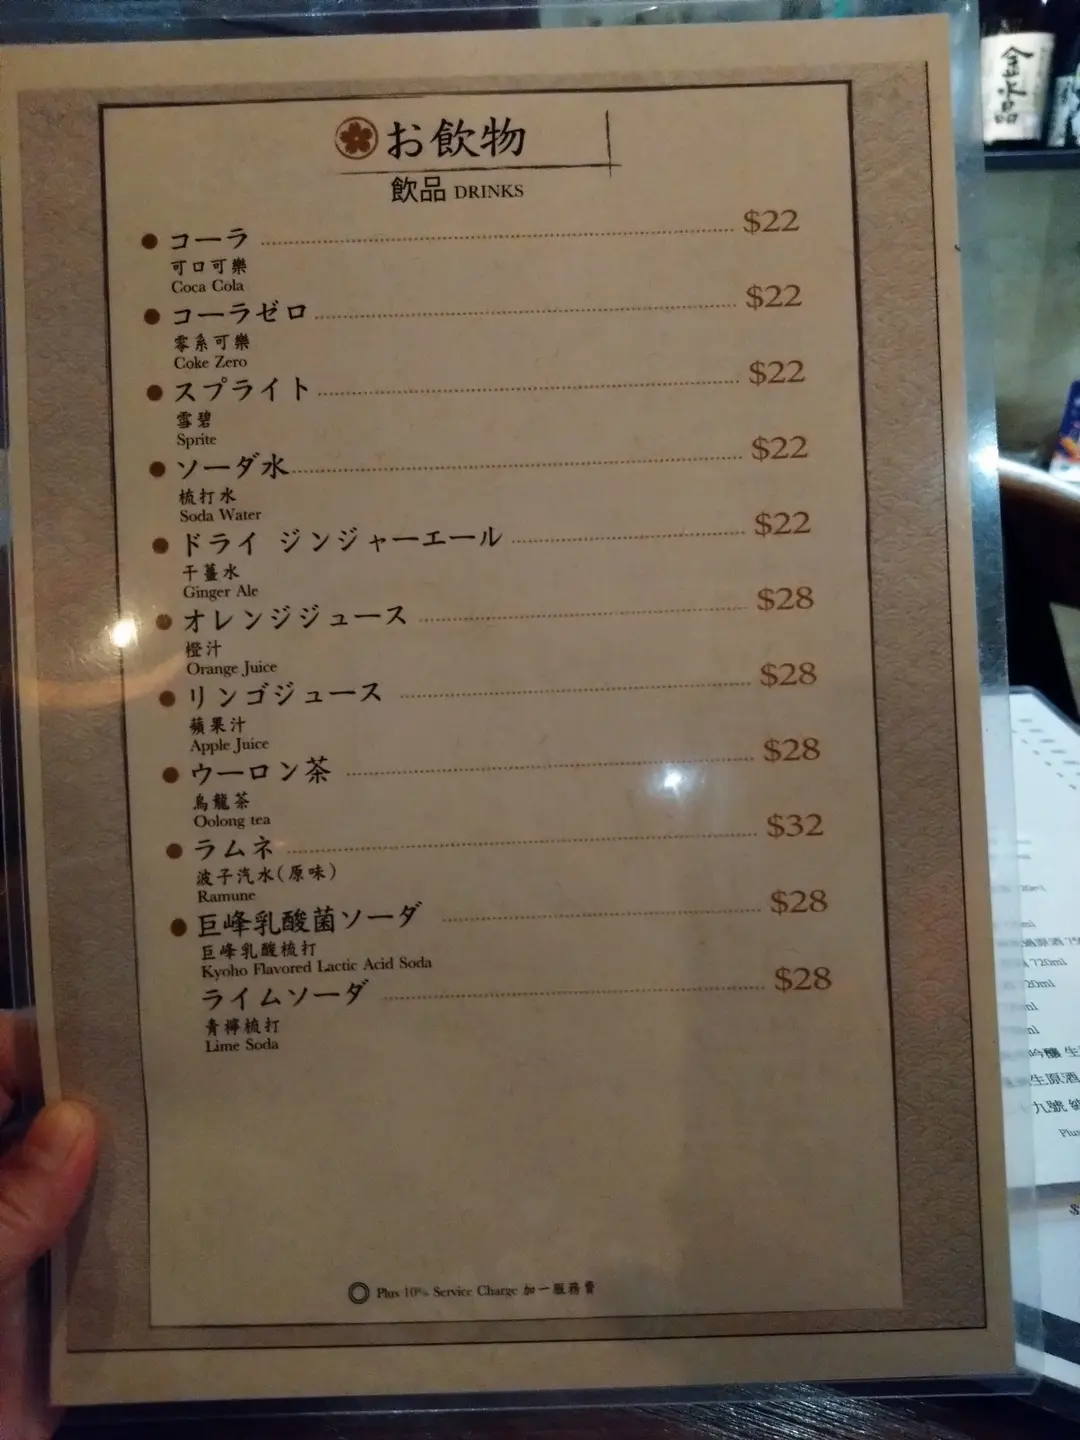 お飲物
飲品 DRINKS
コーラ $22
可口可樂
Coca Cola
コーラゼロ $22
零系可樂
Coke Zero
スプライト $22
雪碧
Sprite
ソーダ水 $22
梳打水
Soda Water
ドライ ジンジャーエール $22
干薑水
Ginger Ale
オレンジジュース $28
橙汁
Orange Juice
リンゴジュース $28
蘋果汁
Apple Juice
ウーロン茶 $28
烏龍茶
Oolong tea
ラムネ $32
波子汽水(原味)
Ramune
巨峰乳酸菌ソーダ $28
巨峰乳酸梳打
Kyoho Flavored Lactic Acid Soda
ライムソーダ $28
青檸梳打
Lime Soda
Plus 10% Service Charge 加一服務費
金水晶
原酒 75
720ml
20ml
ml
吟釀 生
生原酒
九號
Plus